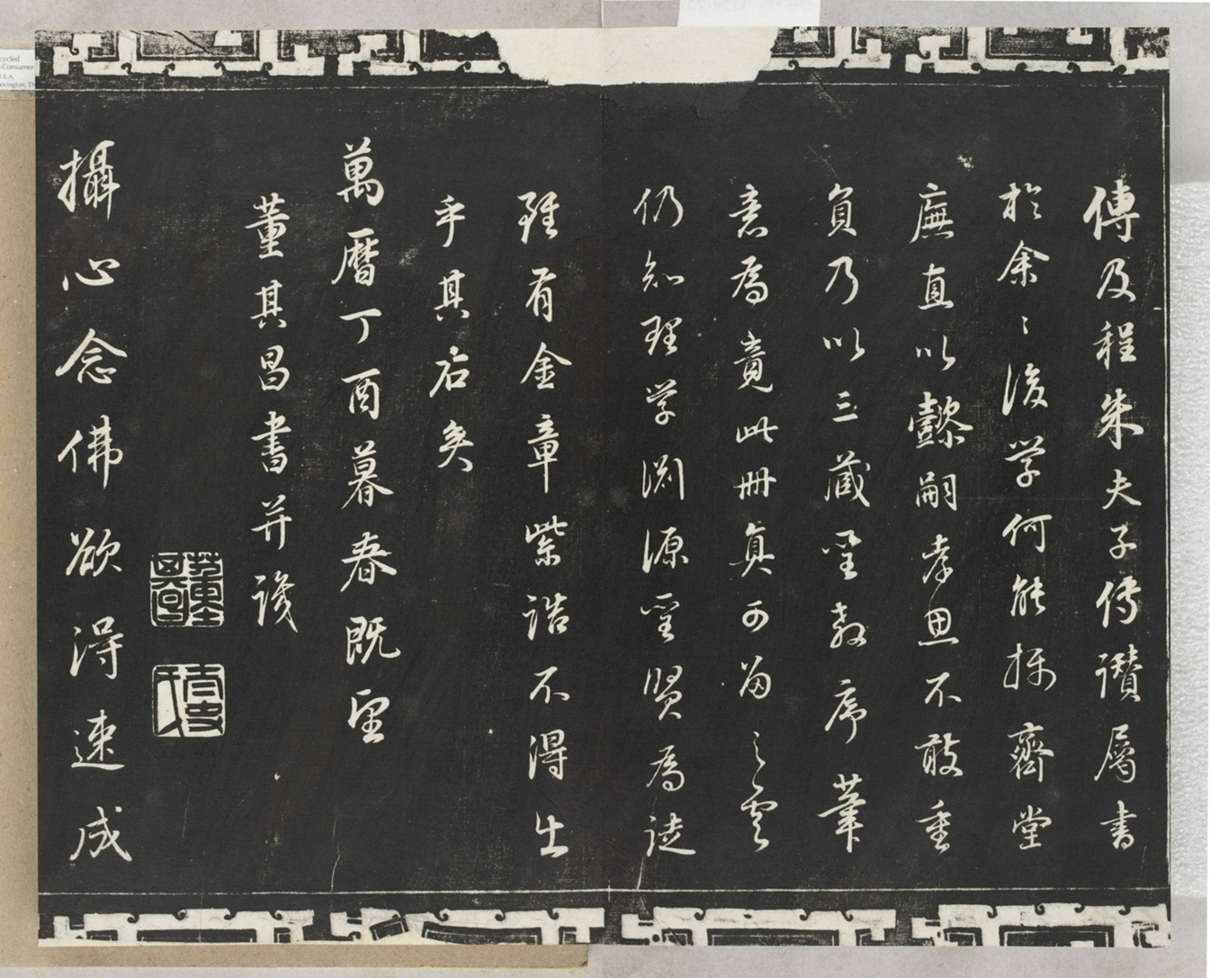 傅及程朱夫子傳讚屬書
於余〻後學何能摛齊堂
廡直以懿嗣孝思不敢重
負乃以三藏聖教序筆
意為竟此冊真可為之云
仍知理學淵源聖賢為徒
雖有金章紫誥不得出
乎其右矣
萬曆丁酉暮春既望
董其昌書并識
攝心念佛欲得速成
cycled
-Consumer
U.S.A.